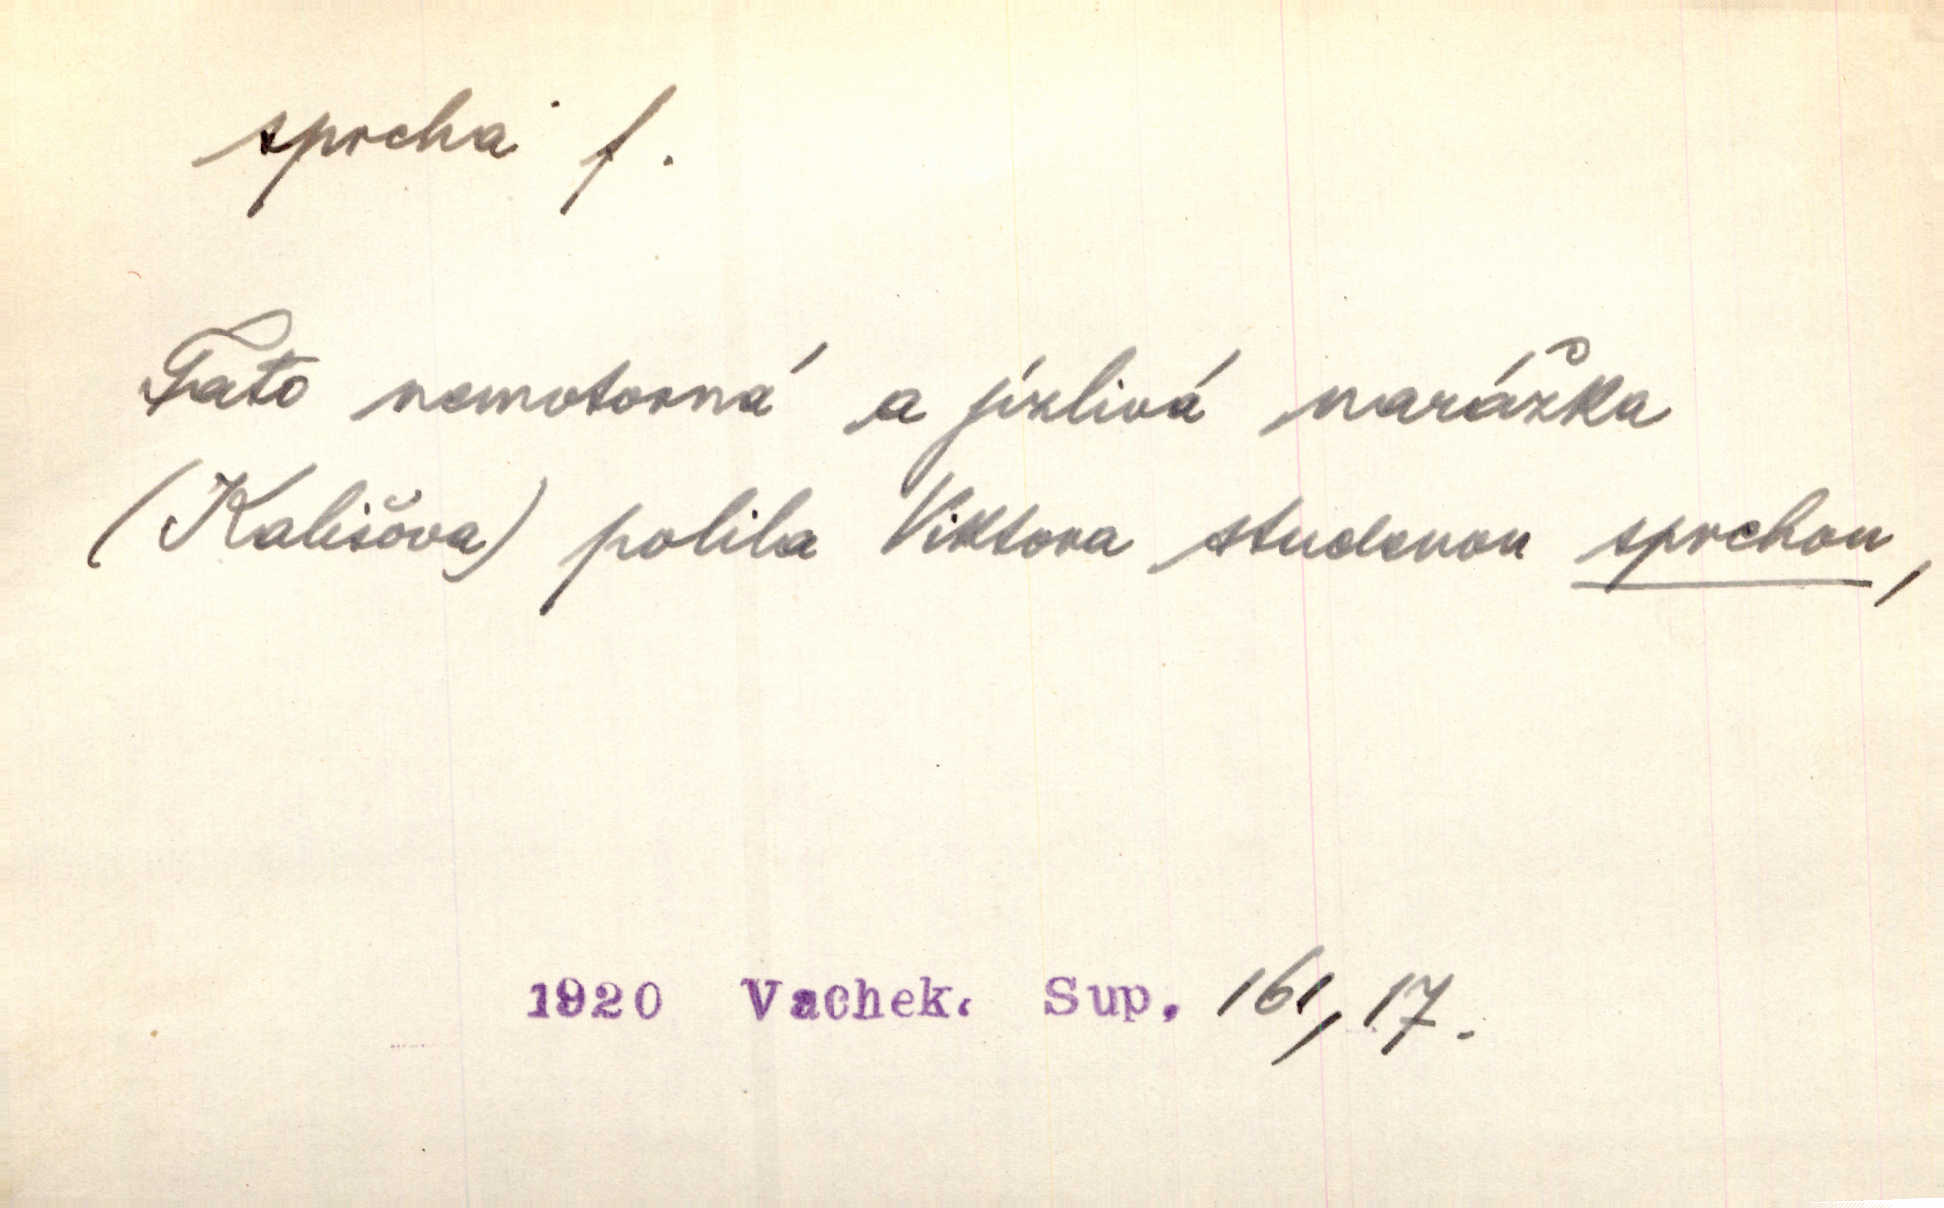 sprcha f.
Tato nemotorná a jízlivá narážka
(Kališova) polila Viktora studenou sprchou,
1920 Vachek. Sup. 161, 17.